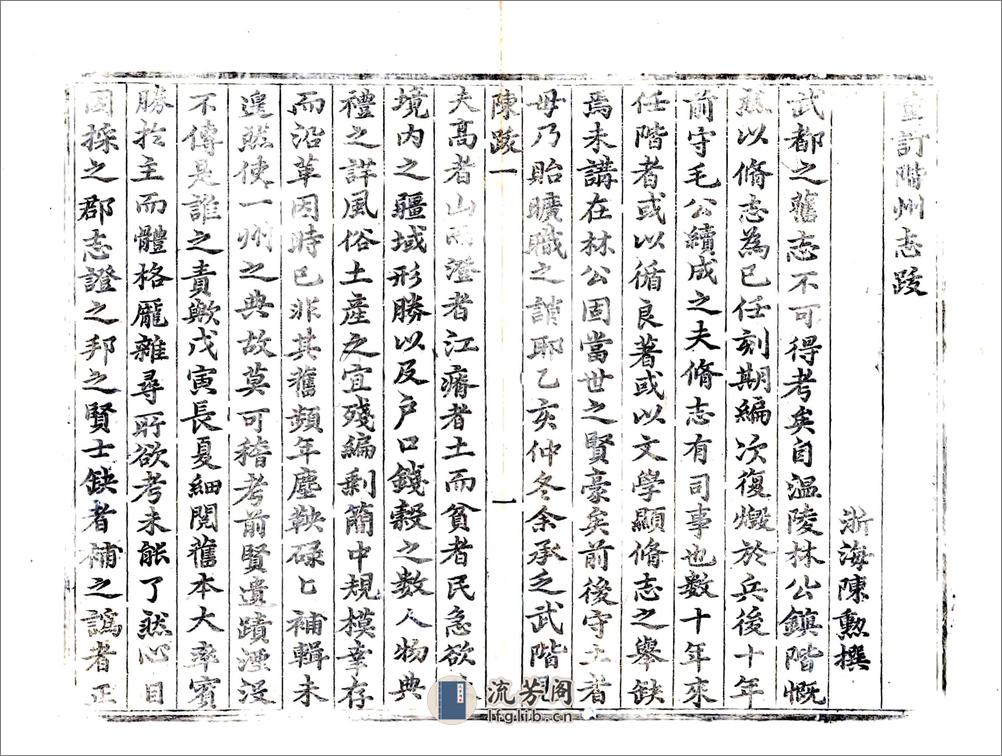 重訂階州志跋
浙海陳勲撰
武都之舊志不可得考矣自溫陵林公鎮階慨
然以脩志為已任刻期編次復燬於兵後十年
前守毛公續成之夫脩志有司事也数十年來
任階者或以循良著或以文學顯脩志之舉缺
焉未講在林公固當世之賢豪矣前後守土者
毋乃貽曠職之誚耶乙亥仲冬余承乏武階
陳跋一
一
夫高者山而澄者江瘠者土而貧者民急欲
境内之疆域形勝以及户口錢穀之数人物典
禮之詳風俗土產之宜殘編剩簡中規模幸存
而沿革因時已非其舊頻年塵鞅碌匕補輯未
遑然使一州之典故莫可稽考前賢遺蹟湮没
不傳是誰之責歟戊寅長夏細閱舊本大率賓
勝於主而體格厖雜尋所欲考未能了然心目
因採之郡志證之邦之賢士缺者補之譌者正
流芳阁
lfglib.cn